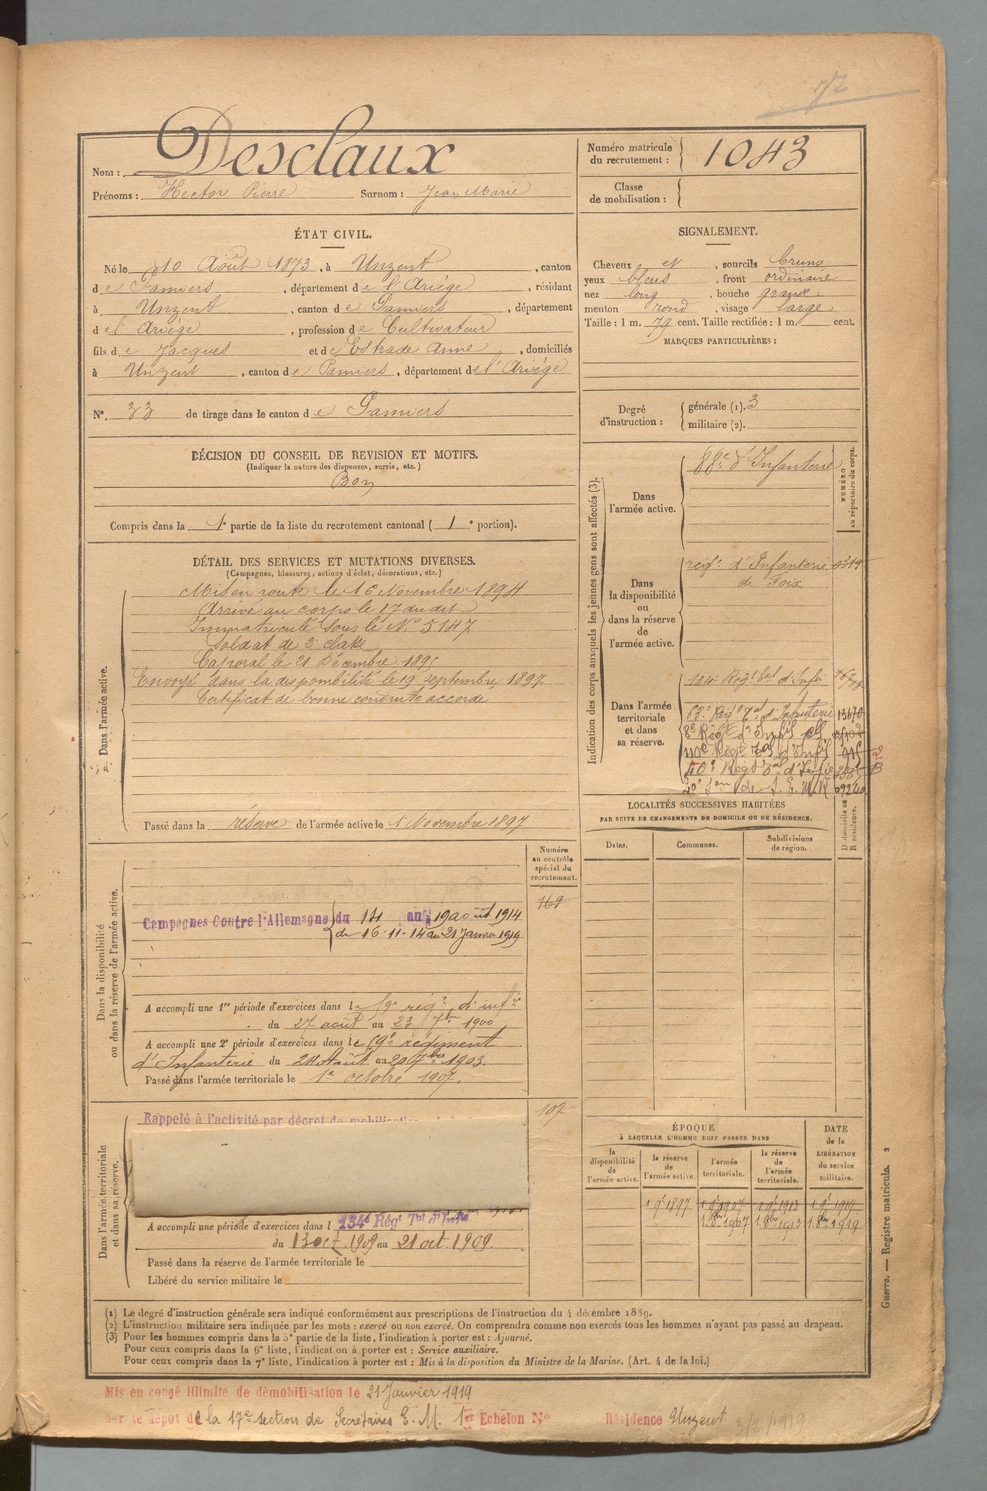 72
Nom : Desclaux
Prénoms : Hector Pierre Surnom : Jean Marie
Numéro matricule du recrutement : 1043
Classe de mobilisation :
ÉTAT CIVIL.
Né le 10 Août 1873, à Unzent, canton
de Pamiers, département de l'Ariège, résidant
à Unzent, canton de Pamiers, département
del Ariège, profession de Cultivateur
fils de Jacques et de Estrade Anne, domiciliés
à Unzent, canton de Pamiers, département de l'Ariège
N° 33 de tirage dans le canton de Pamiers
SIGNALEMENT.
Cheveux et, sourcils bruns
yeux bleus, front ordinaire
nez long, bouche grande
menton rond, visage large
Taille : 1 m. 79 cent. Taille rectifiée : 1 m. cent.
MARQUES PARTICULIÈRES :
Degré d'instruction :
générale (1). 3
militaire (2).
DÉCISION DU CONSEIL DE REVISION ET MOTIFS.
(Indiquer la nature des dispenses, sursis, etc.)
Bon
Compris dans la 1e partie de la liste du recrutement cantonal (1e portion).
DÉTAIL DES SERVICES ET MUTATIONS DIVERSES.
(Campagnes, blessures, actions d'éclat, décorations, etc.)
Dans l'armée active.
Mis en route le 16 Novembre 1894
Arrivé au corps le 17 du dit
Immatriculé sous le N° 5147
Soldat de 2e classe
Caporal le 21 Décembre
Envoyé dans la disponibilité le 19 septembre 1897
Certificat de bonne conduite accordé
Passé dans la réserve de l'armée active le 1 Novembre 1897
Indication des corps auxquels les jeunes gens sont affectés (3).
NUMÉRO au répertoire du corps.
Dans l'armée active.
88e d'Infanterie
Dans la disponibilité ou dans la réserve de l'armée active.
régt d'Infanterie
de Foix
Dans l'armée territoriale et dans sa réserve.
134e Régt Tal d'Infie
63e Régt Tal d'Infanterie 13670
LOCALITÉS SUCCESSIVES HABITÉES
PAR SUITE DE CHANGEMENTS DE DOMICILE OU DE RÉSIDENCE.
Dates. Communes. Subdivisions de région. D domicile ou R résidence.
Numéro au contrôle spécial du recrutement.
169
Dans la disponibilité ou dans la réserve de l'armée active.
Campagnes Contre l'Allemagne du 14 au 19 août 1914
du 16-11-14 au 21 Janvier 1919
A accompli une 1re période d'exercices dans le régt d'infie
du 27 août au 23 7bre 1900
A accompli une 2e période d'exercices dans le régiment
d'Infanterie du 24 Août au 20 7bre 1903.
Passé dans l'armée territoriale le 1er octobre 1907.
107
Dans l'armée territoriale et dans sa réserve.
Rappelé à l'activité par décret de
A accompli une période d'exercices dans l 134e Régt Tal d'Infie
du 13 oct 1909 au 21 oct 1909
Passé dans la réserve de l'armée territoriale le
Libéré du service militaire le
ÉPOQUE
À LAQUELLE L'HOMME DOIT PASSER DANS
la disponibilité de l'armée active.
la réserve de l'armée active.
l'armée territoriale.
la réserve de l'armée territoriale.
DATE de la LIBÉRATION du service militaire.
Guerre. — Registre matricule. 2
(1) Le degré d'instruction générale sera indiqué conformément aux prescriptions de l'instruction du 4 décembre 1889.
(2) L'instruction militaire sera indiquée par les mots : exercé ou non exercé. On comprendra comme non exercés tous les hommes n'ayant pas passé au drapeau.
(3) Pour les hommes compris dans la 5e partie de la liste, l'indication à porter est : Ajourné.
Pour ceux compris dans la 6e liste, l'indication à porter est : Service auxiliaire.
Pour ceux compris dans la 7e liste, l'indication à porter est : Mis à la disposition du Ministre de la Marine. (Art. 4 de la loi.)
Mis en congé illimité de démobilisation le 21 Janvier 1919
par le dépôt de la 17e section de Secrétaires E. M. 1er Echelon N° Résidence Unzent